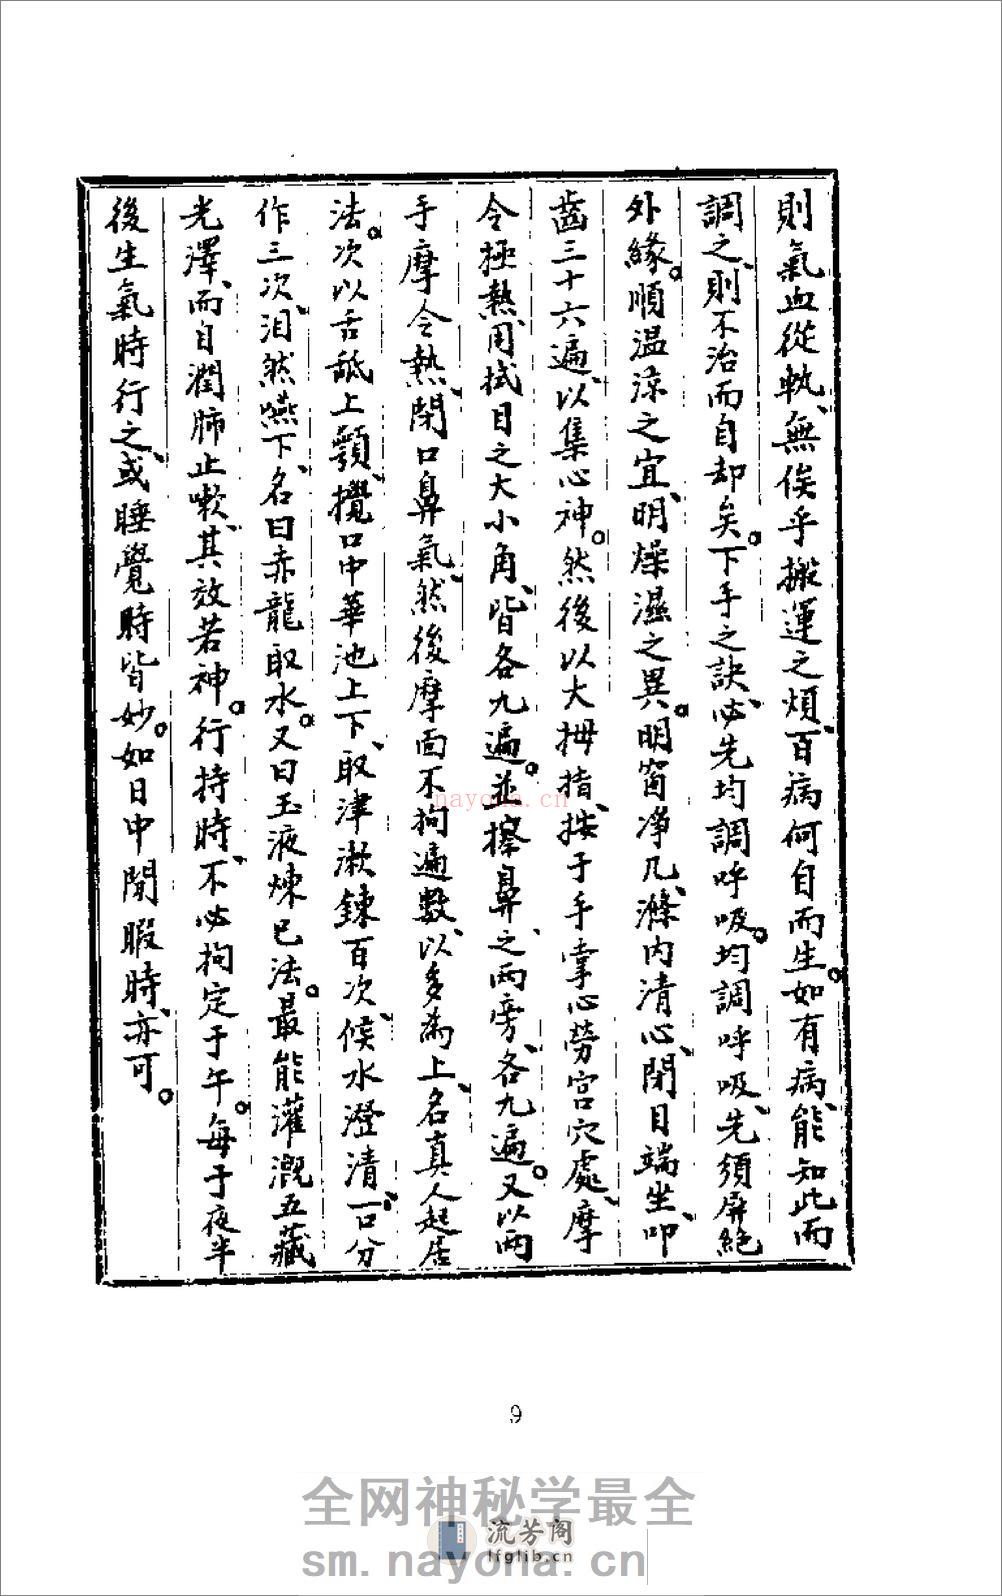 則氣血從軌、無俟乎搬運之煩、百病何自而生。如有病、能知此而
調之、則不治而自却矣。下手之訣、必先均調呼吸。均調呼吸、先須屏絕
外緣。順温涼之宜、明燥濕之異。明窗净几、滌内清心、閉目端坐、叩
齒三十六遍、以集心神。然後以大拇指、按于手掌心勞宫穴處、摩
令極熱、用拭目之大小角、皆各九遍。並擦鼻之兩旁、各九遍。又以兩
手摩令熱、閉口鼻氣、然後摩面不拘遍數、以多為上、名真人起居
法。次以舌舐上顎、攪口中華池上下、取津漱鍊百次、候水澄清、一口分
作三次、汨然嚥下、名曰赤龍取水。又曰玉液煉已法。最能灌溉五藏
光澤、而自潤肺止嗽、其效若神。行持時、不必拘定于午。每于夜半
後生氣時行之、或睡覺時皆妙。如日中閒暇時、亦可。
nayona.cn
9
全网神秘学最全
流芳阁
lfglib.cn
sm.nayona.cn